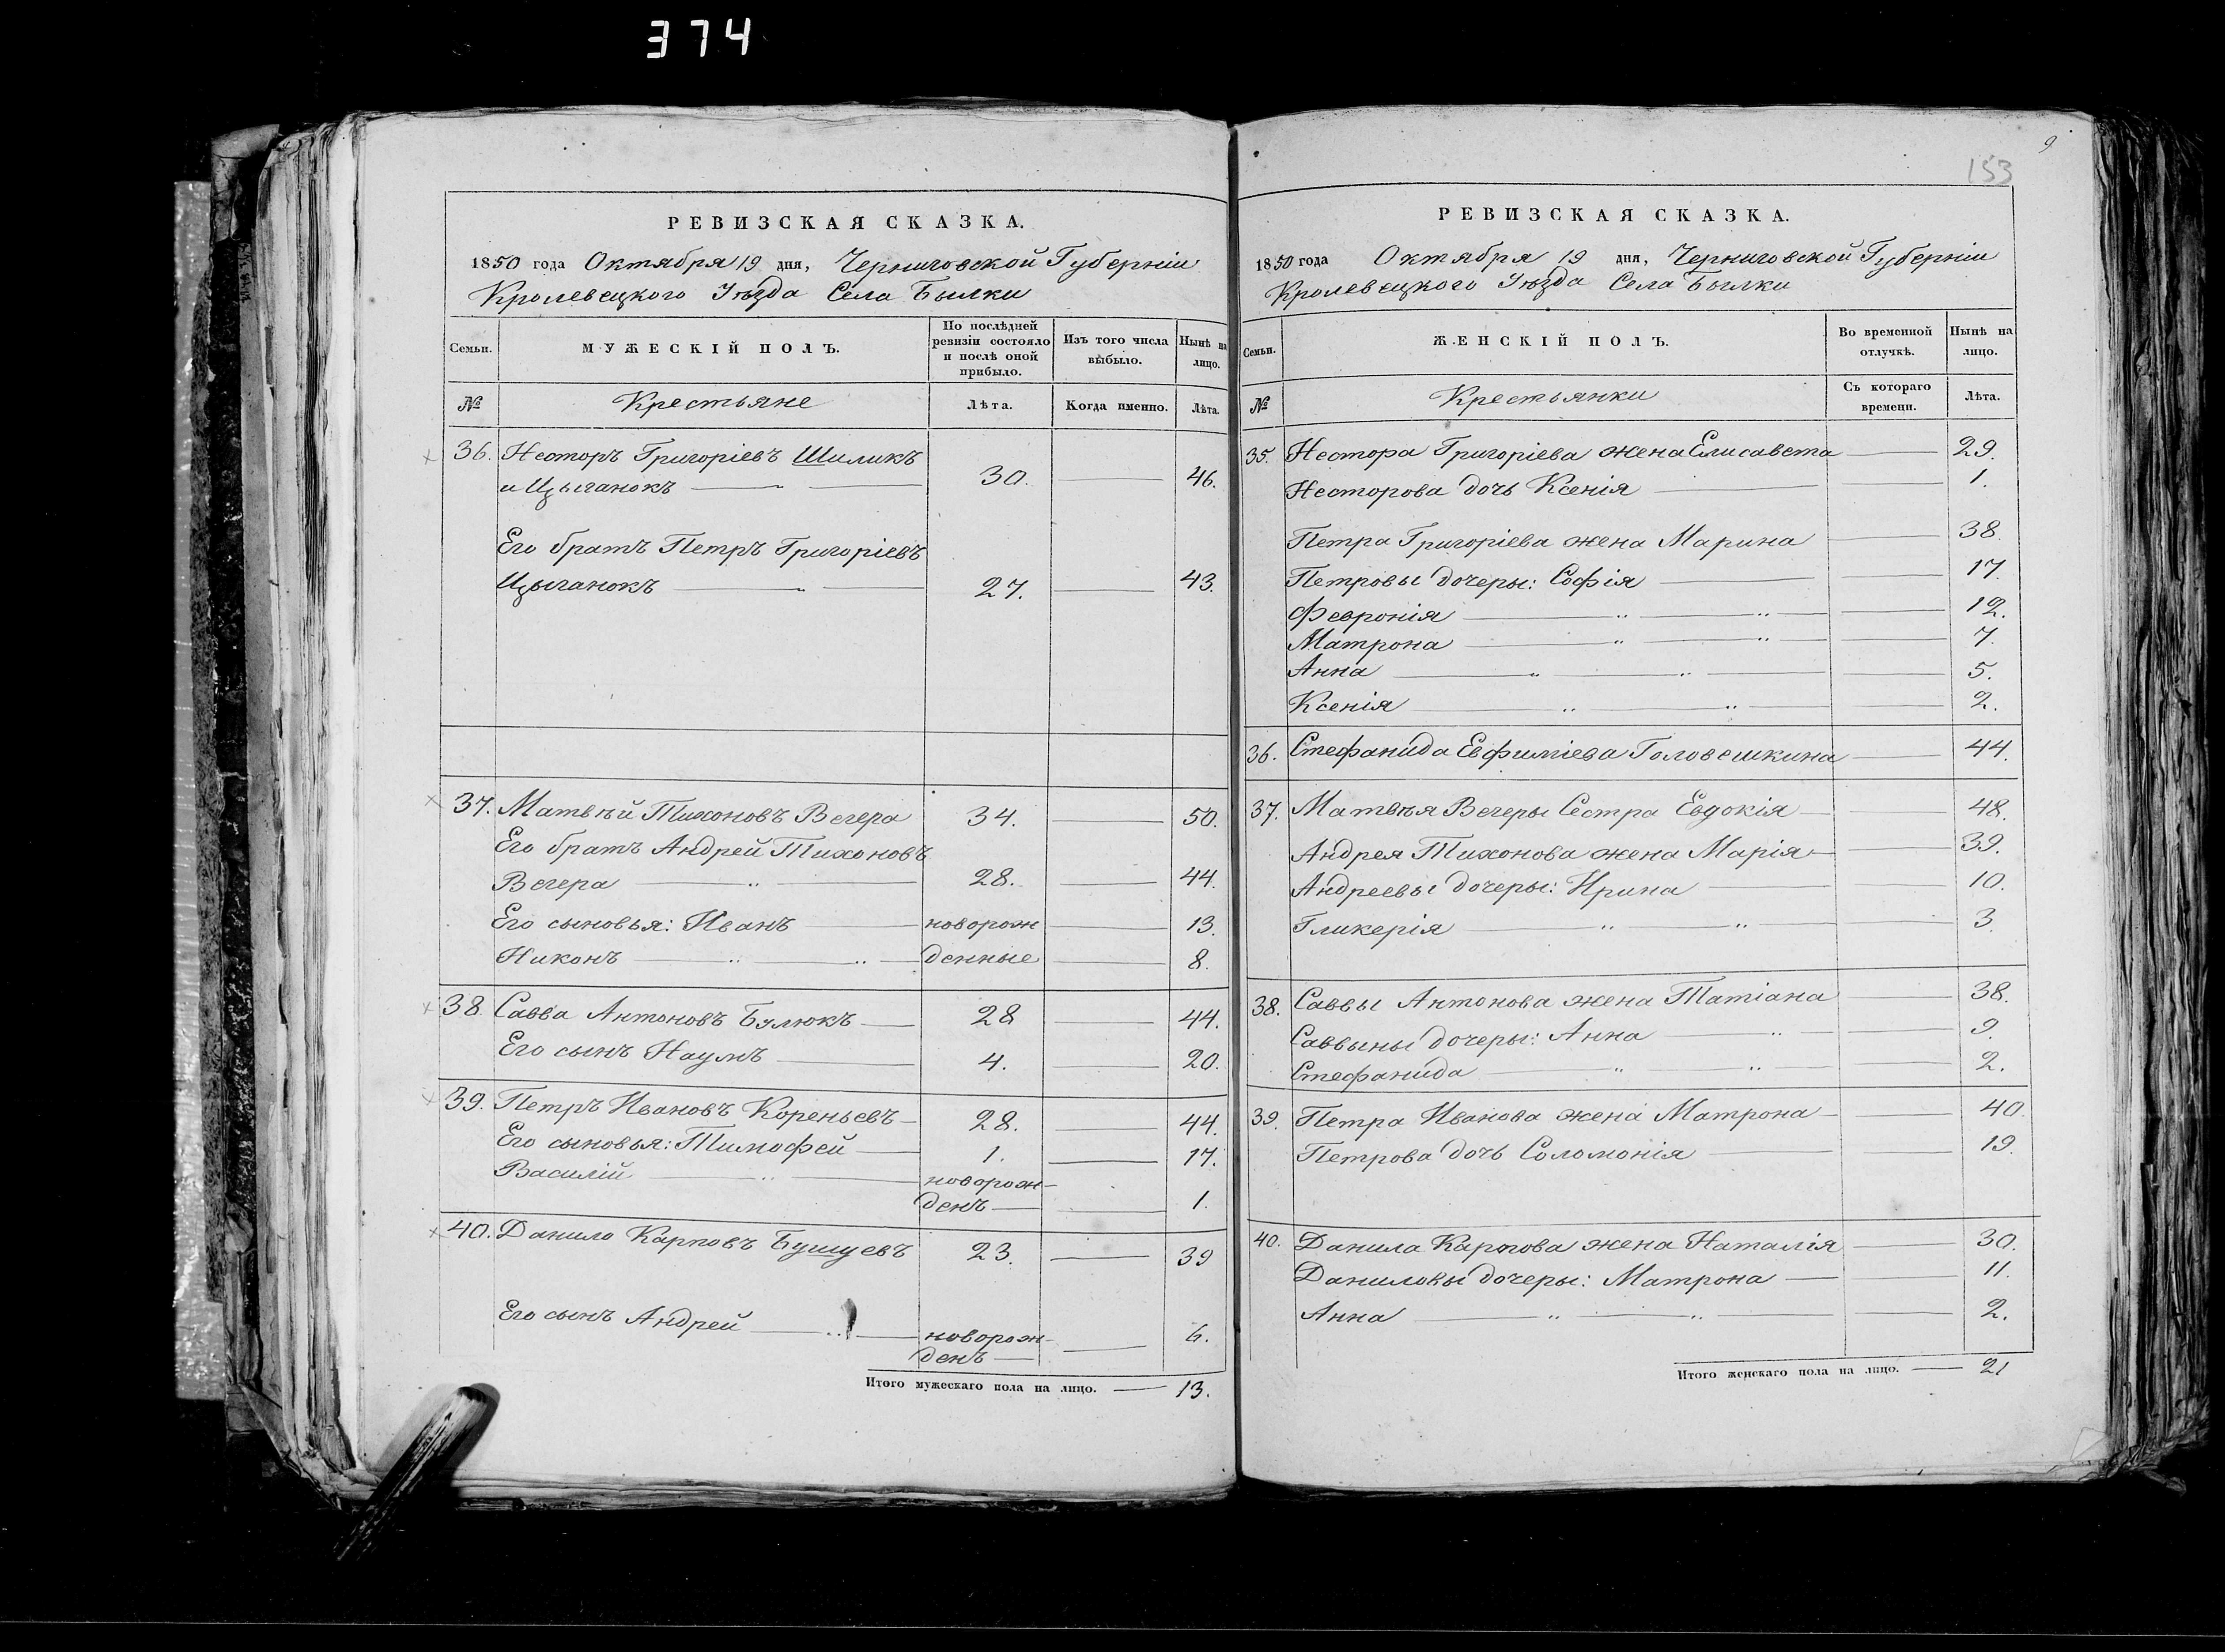 374
РЕВИЗСКАЯ СКАЗКА.
1850 года Октября 19 дня, Черниговской Губерніи
Кролевецкого Уѣзда Села Былки
Семьи. МУЖЕСКІЙ ПОЛЪ. По послѣдней ревизіи состояло и послѣ оной прибыло. Изъ того числа выбыло. Нынѣ на лицо.
№ Крестьяне Лѣта. Когда именно. Лѣта.
36. Несторъ Григоріевъ Шиликъ
и Цыганокъ 30. 46.
Его братъ Петръ Григоріевъ
Цыганокъ 27. 43.
37. Матвѣй Тихоновъ Вечера 34. 50.
Его братъ Андрей Тихоновъ
Вечера 28. 44.
Его сыновья: Иванъ новорож 13.
Никонъ денные 8.
38. Савва Антоновъ Булюкъ 28 44.
Его сынъ Наумъ 4. 20.
39. Петръ Ивановъ Кореньевъ 28. 44.
Его сыновья: Тимофей 1. 17.
Василій новорож-
денъ 1.
40. Данило Карповъ Бушуевъ 23. 39
Его сынъ Андрей новорож- 6.
денъ
Итого мужескаго пола на лицо. 13.
9
153
РЕВИЗСКАЯ СКАЗКА.
1850 года Октября 19 дня, Черниговской Губерніи
Кролевецкого Уѣзда Села Былки
Семьи. ЖЕНСКІЙ ПОЛЪ. Во временной отлучкѣ. Нынѣ на лицо.
№ Крестьянки Съ котораго времени. Лѣта.
35. Нестора Григоріева жена Елисавета 29.
Несторова дочь Ксенія 1.
Петра Григоріева жена Марина 38.
Петровы дочеры: Софія 17.
Февронія 12.
Матрона 7.
Анна 5.
Ксенія 2.
36. Стефанида Евфиміева Головешкина 44.
37. Матвѣя Вечеры Сестра Евдокія 48.
Андрея Тихонова жена Марія 39.
Андреевы дочеры: Ирина 10.
Гликерія 3.
38. Саввы Антонова жена Татіана 38.
Саввыны дочеры: Анна 9.
Стефанида 2.
39. Петра Иванова жена Матрона 40.
Петрова дочь Соломонія 19.
40. Данила Карпова жена Наталія 30.
Даниловы дочеры: Матрона 11.
Анна 2.
Итого женскаго пола на лицо. 21